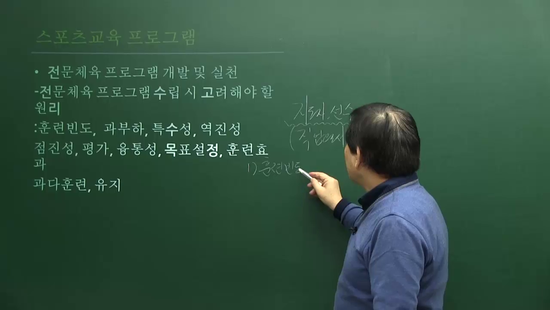 스포츠교육 프로그램
• 전문체육 프로그램 개발 및 실천
-전문체육 프로그램 수립 시 고려해야 할
원리
:훈련빈도, 과부하, 특수성, 역진성
점진성, 평가, 융통성, 목표설정, 훈련효
과
과다훈련, 유지
지도자, 선수
1) 훈련빈도